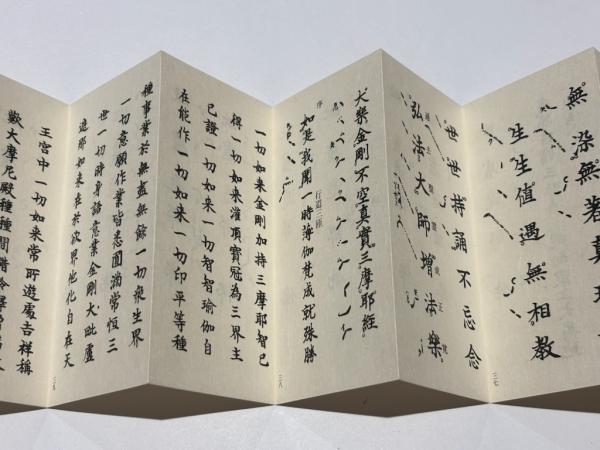 無染無着真
生生值遇無相教
世世持誦不忘念
弘法大師增法樂
三七
大樂金剛不空真實三摩耶經
行道三種
如是我聞一時薄伽梵成就殊勝
三八
一切如来金剛加持三摩耶智已
得一切如来灌頂寶冠為三界主
已證一切如来一切智智瑜伽自
在能作一切如来一切印平等種
種事業於無盡無餘一切衆生界
一切意願作業皆悉圓滿常恒三
世一切時身語意業金剛大毗盧
遮那如来在於欲界他化自在天
三九
王宮中一切如来常所遊處吉祥稱
歎大摩尼殿種種間錯鈴鐸